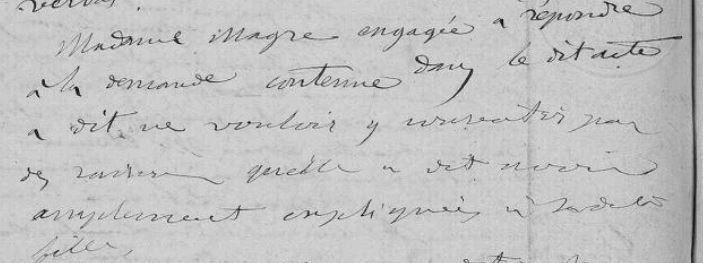 verbal
Madame Magre engagée à répondre
à la demande contenue dans le dit acte
a dit ne vouloir y consentir par
des raisons qu'elle a dit avoir
amplement expliquées à sa dite
fille